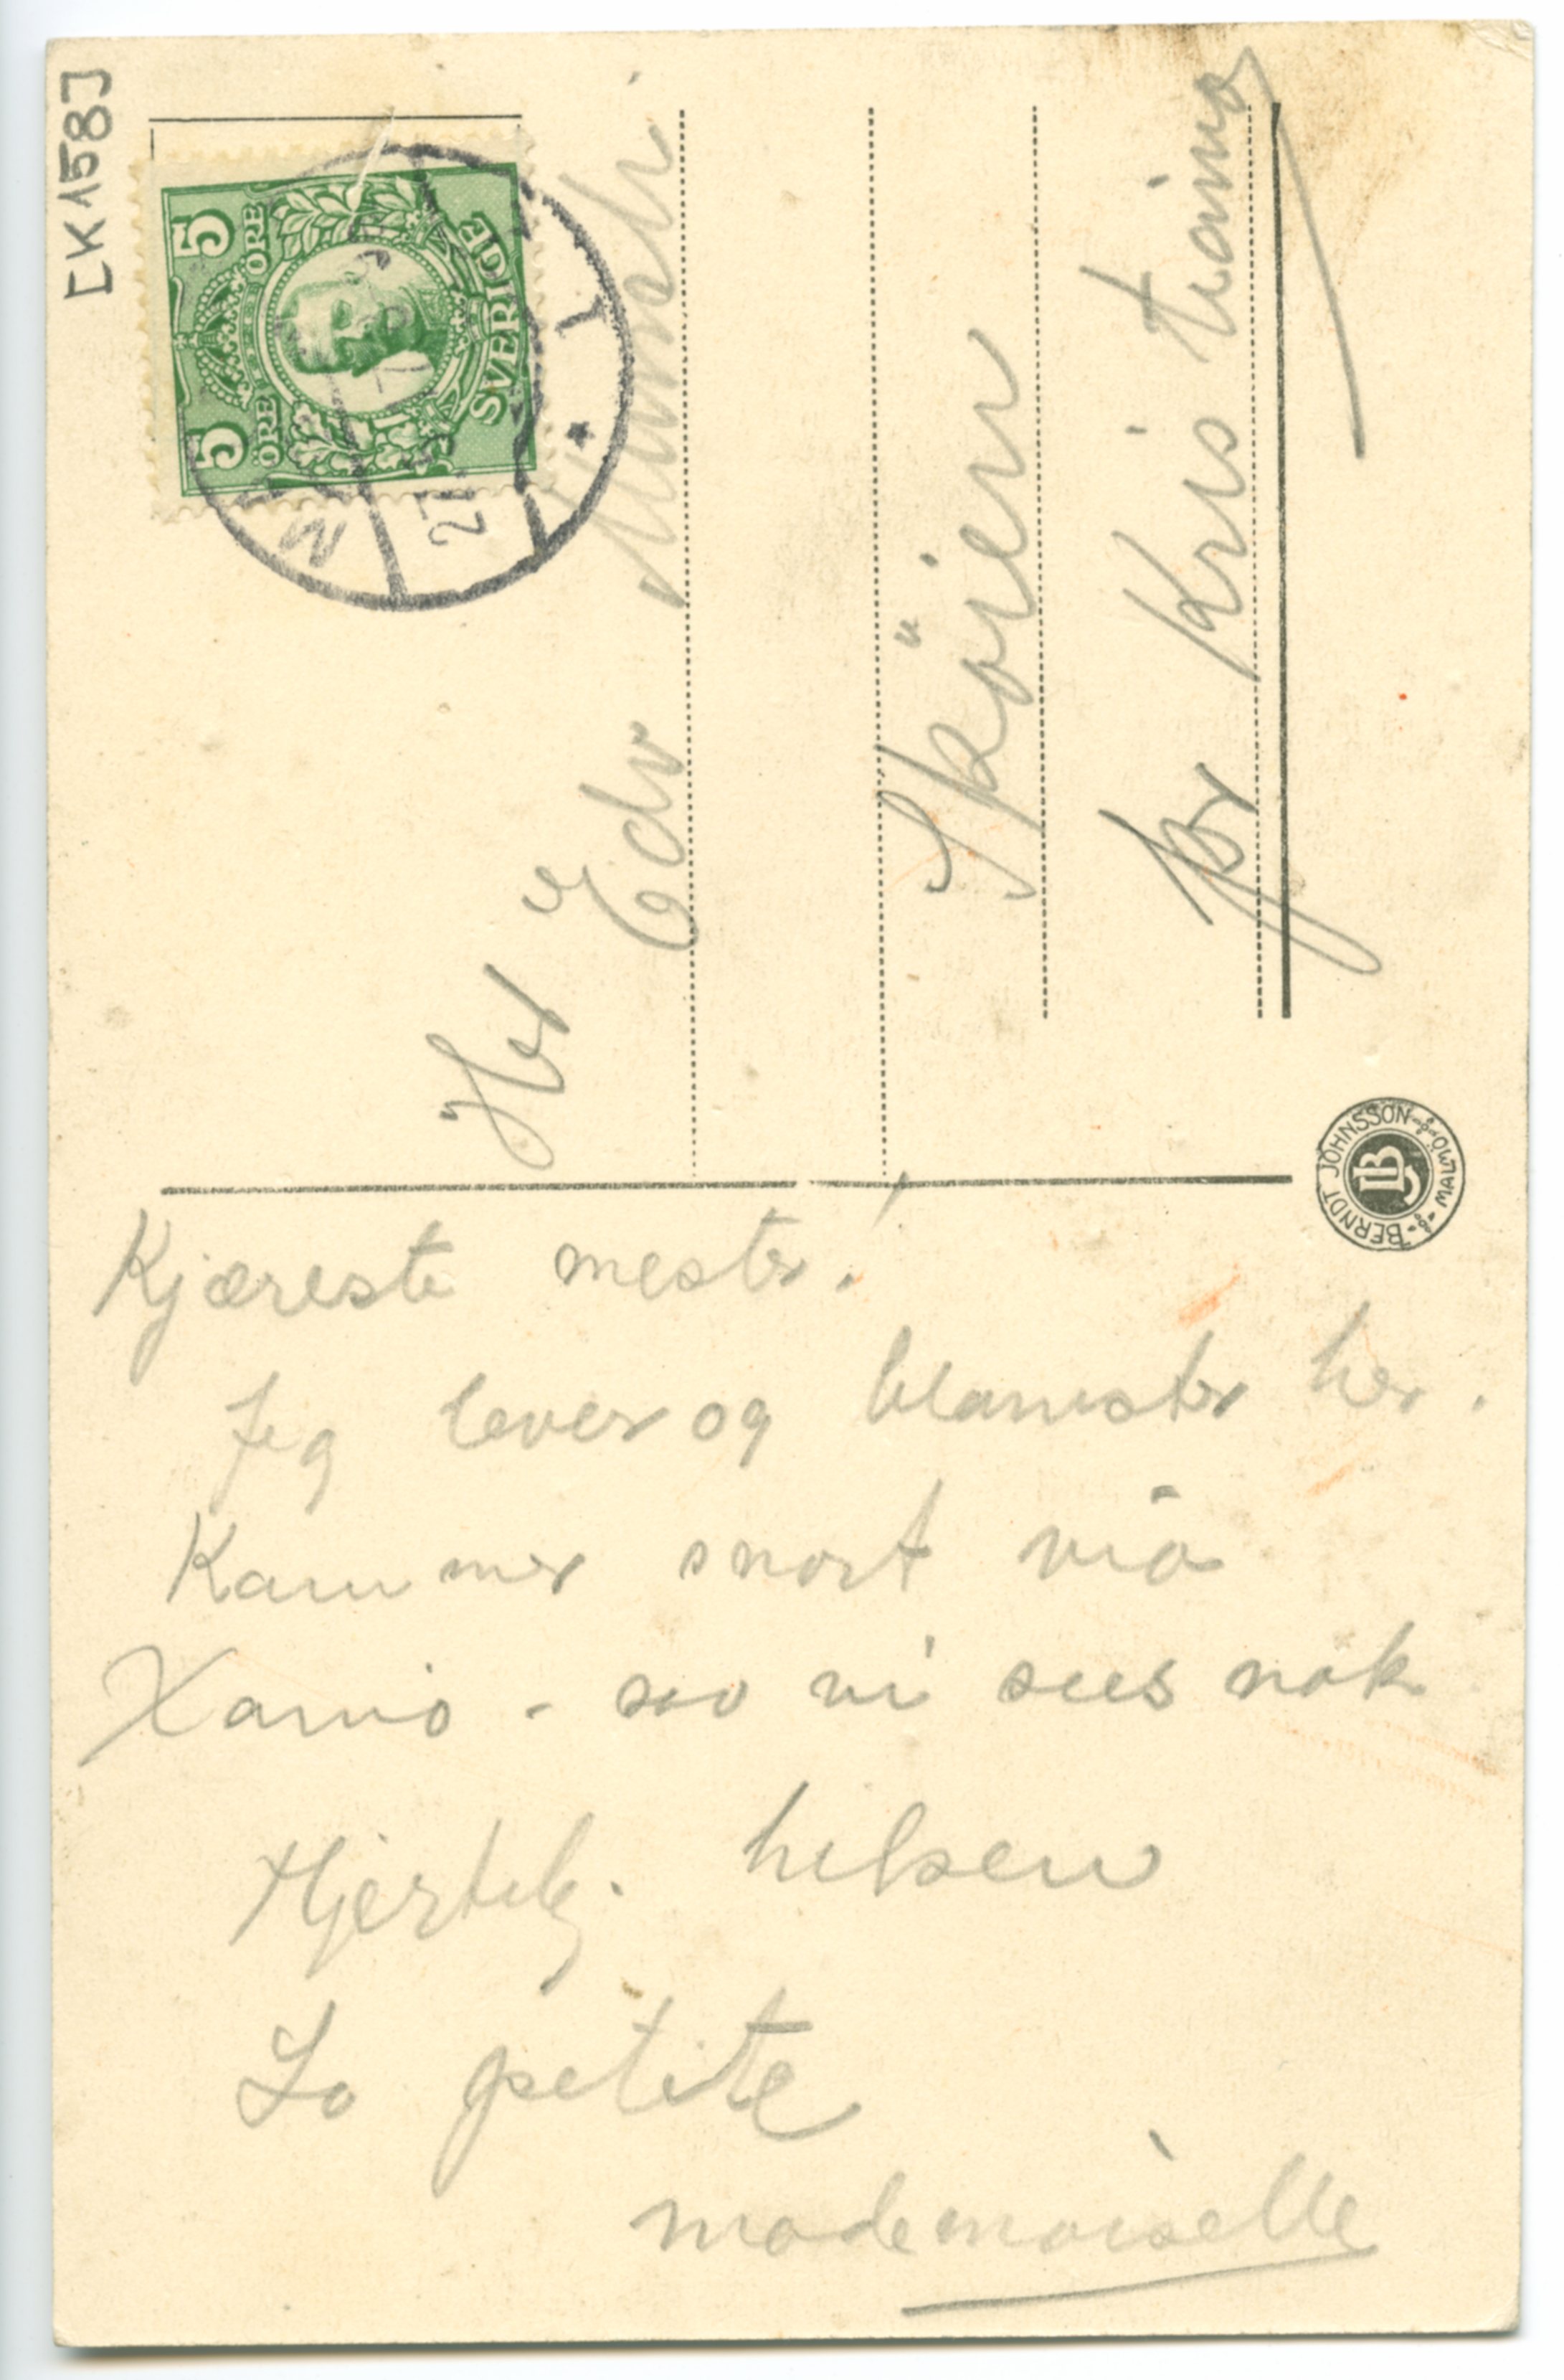 [K158]
5 ÖRE ÖRE 5
SVERIGE
Hr Edv Munch
Sköien
pr Kristiania
BERNDT JOHNSSON MALMÖ
Kjæreste mester!
Jeg lever og blomster her.
Kommer snart via
Xania - saa vi sees nok
Hjertelig. hilsen
La petite
mademoiselle